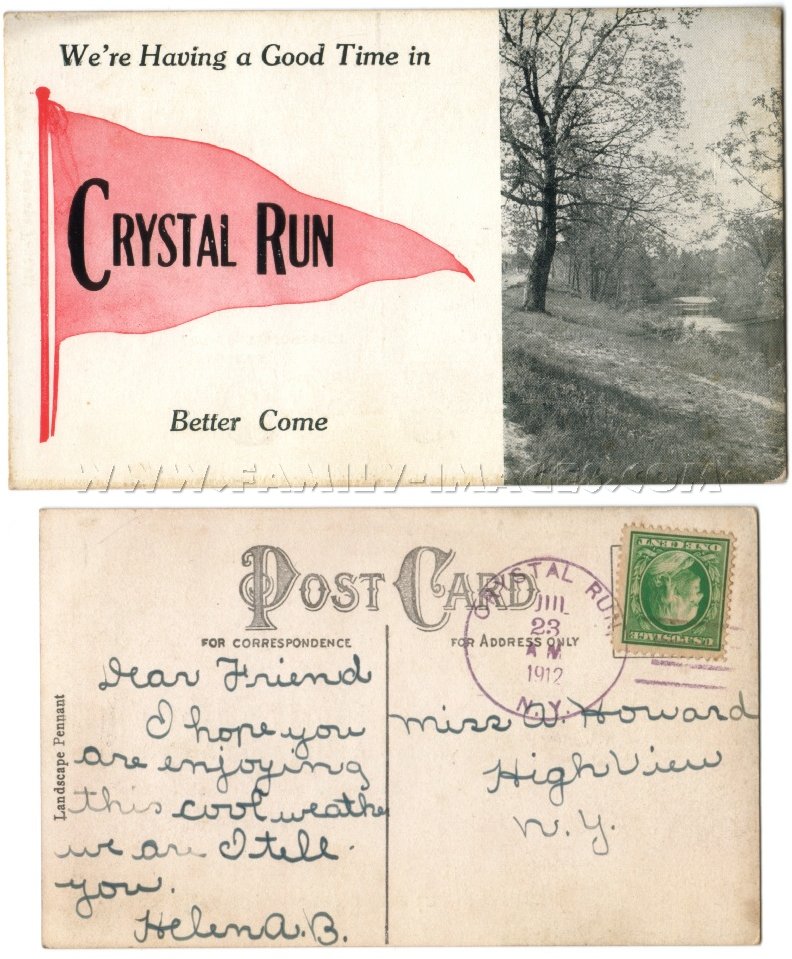 We're Having a Good Time in
CRYSTAL RUN
Better Come
WWW.FAMILY-IMAGES.COM
POST CARD
FOR CORRESPONDENCE
FOR ADDRESS ONLY
CRYSTAL RUN
JUL
23
A M
1912
N.Y.
U.S. POSTAGE
ONE CENT
Landscape Pennant
Dear Friend
I hope you
are enjoying
this cool weather
we are I tell
you.
Helen A. B.
Miss A. Howard
High View
N.Y.